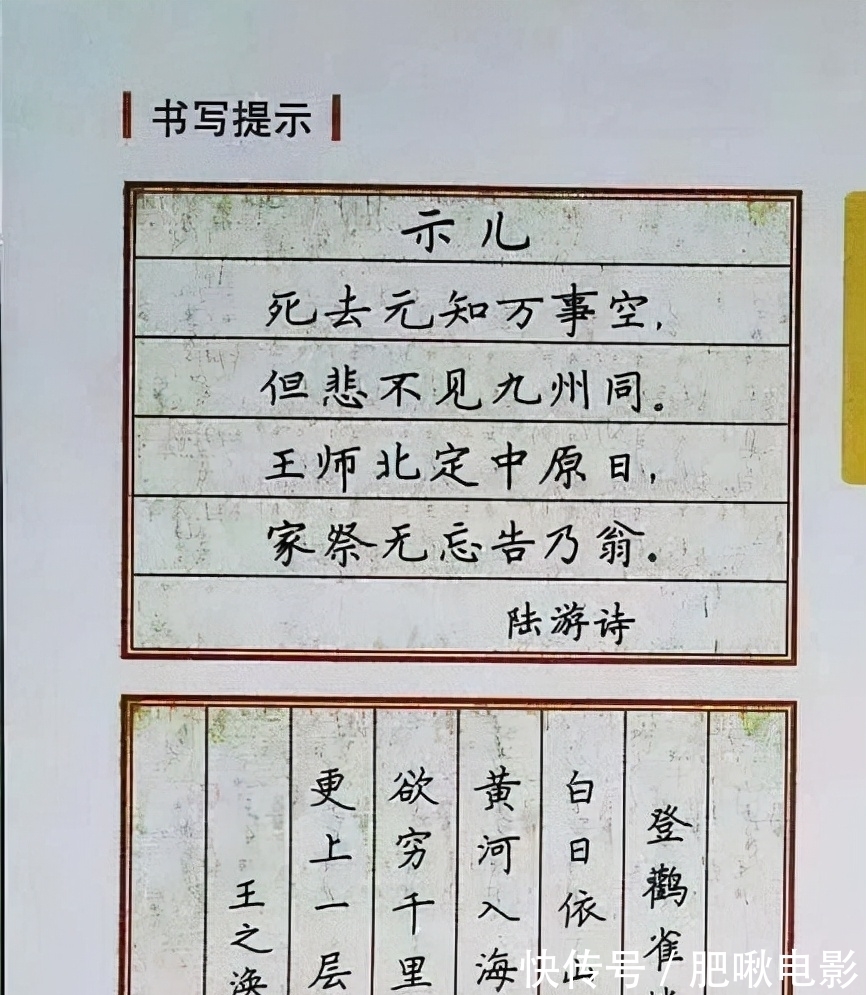 书写提示
示儿
死去元知万事空，
但悲不见九州同。
王师北定中原日，
家祭无忘告乃翁。
陆游诗
登鹳雀
白日依山
黄河入海
欲穷千里
更上一层
王之涣
快传号 / 肥啾电影